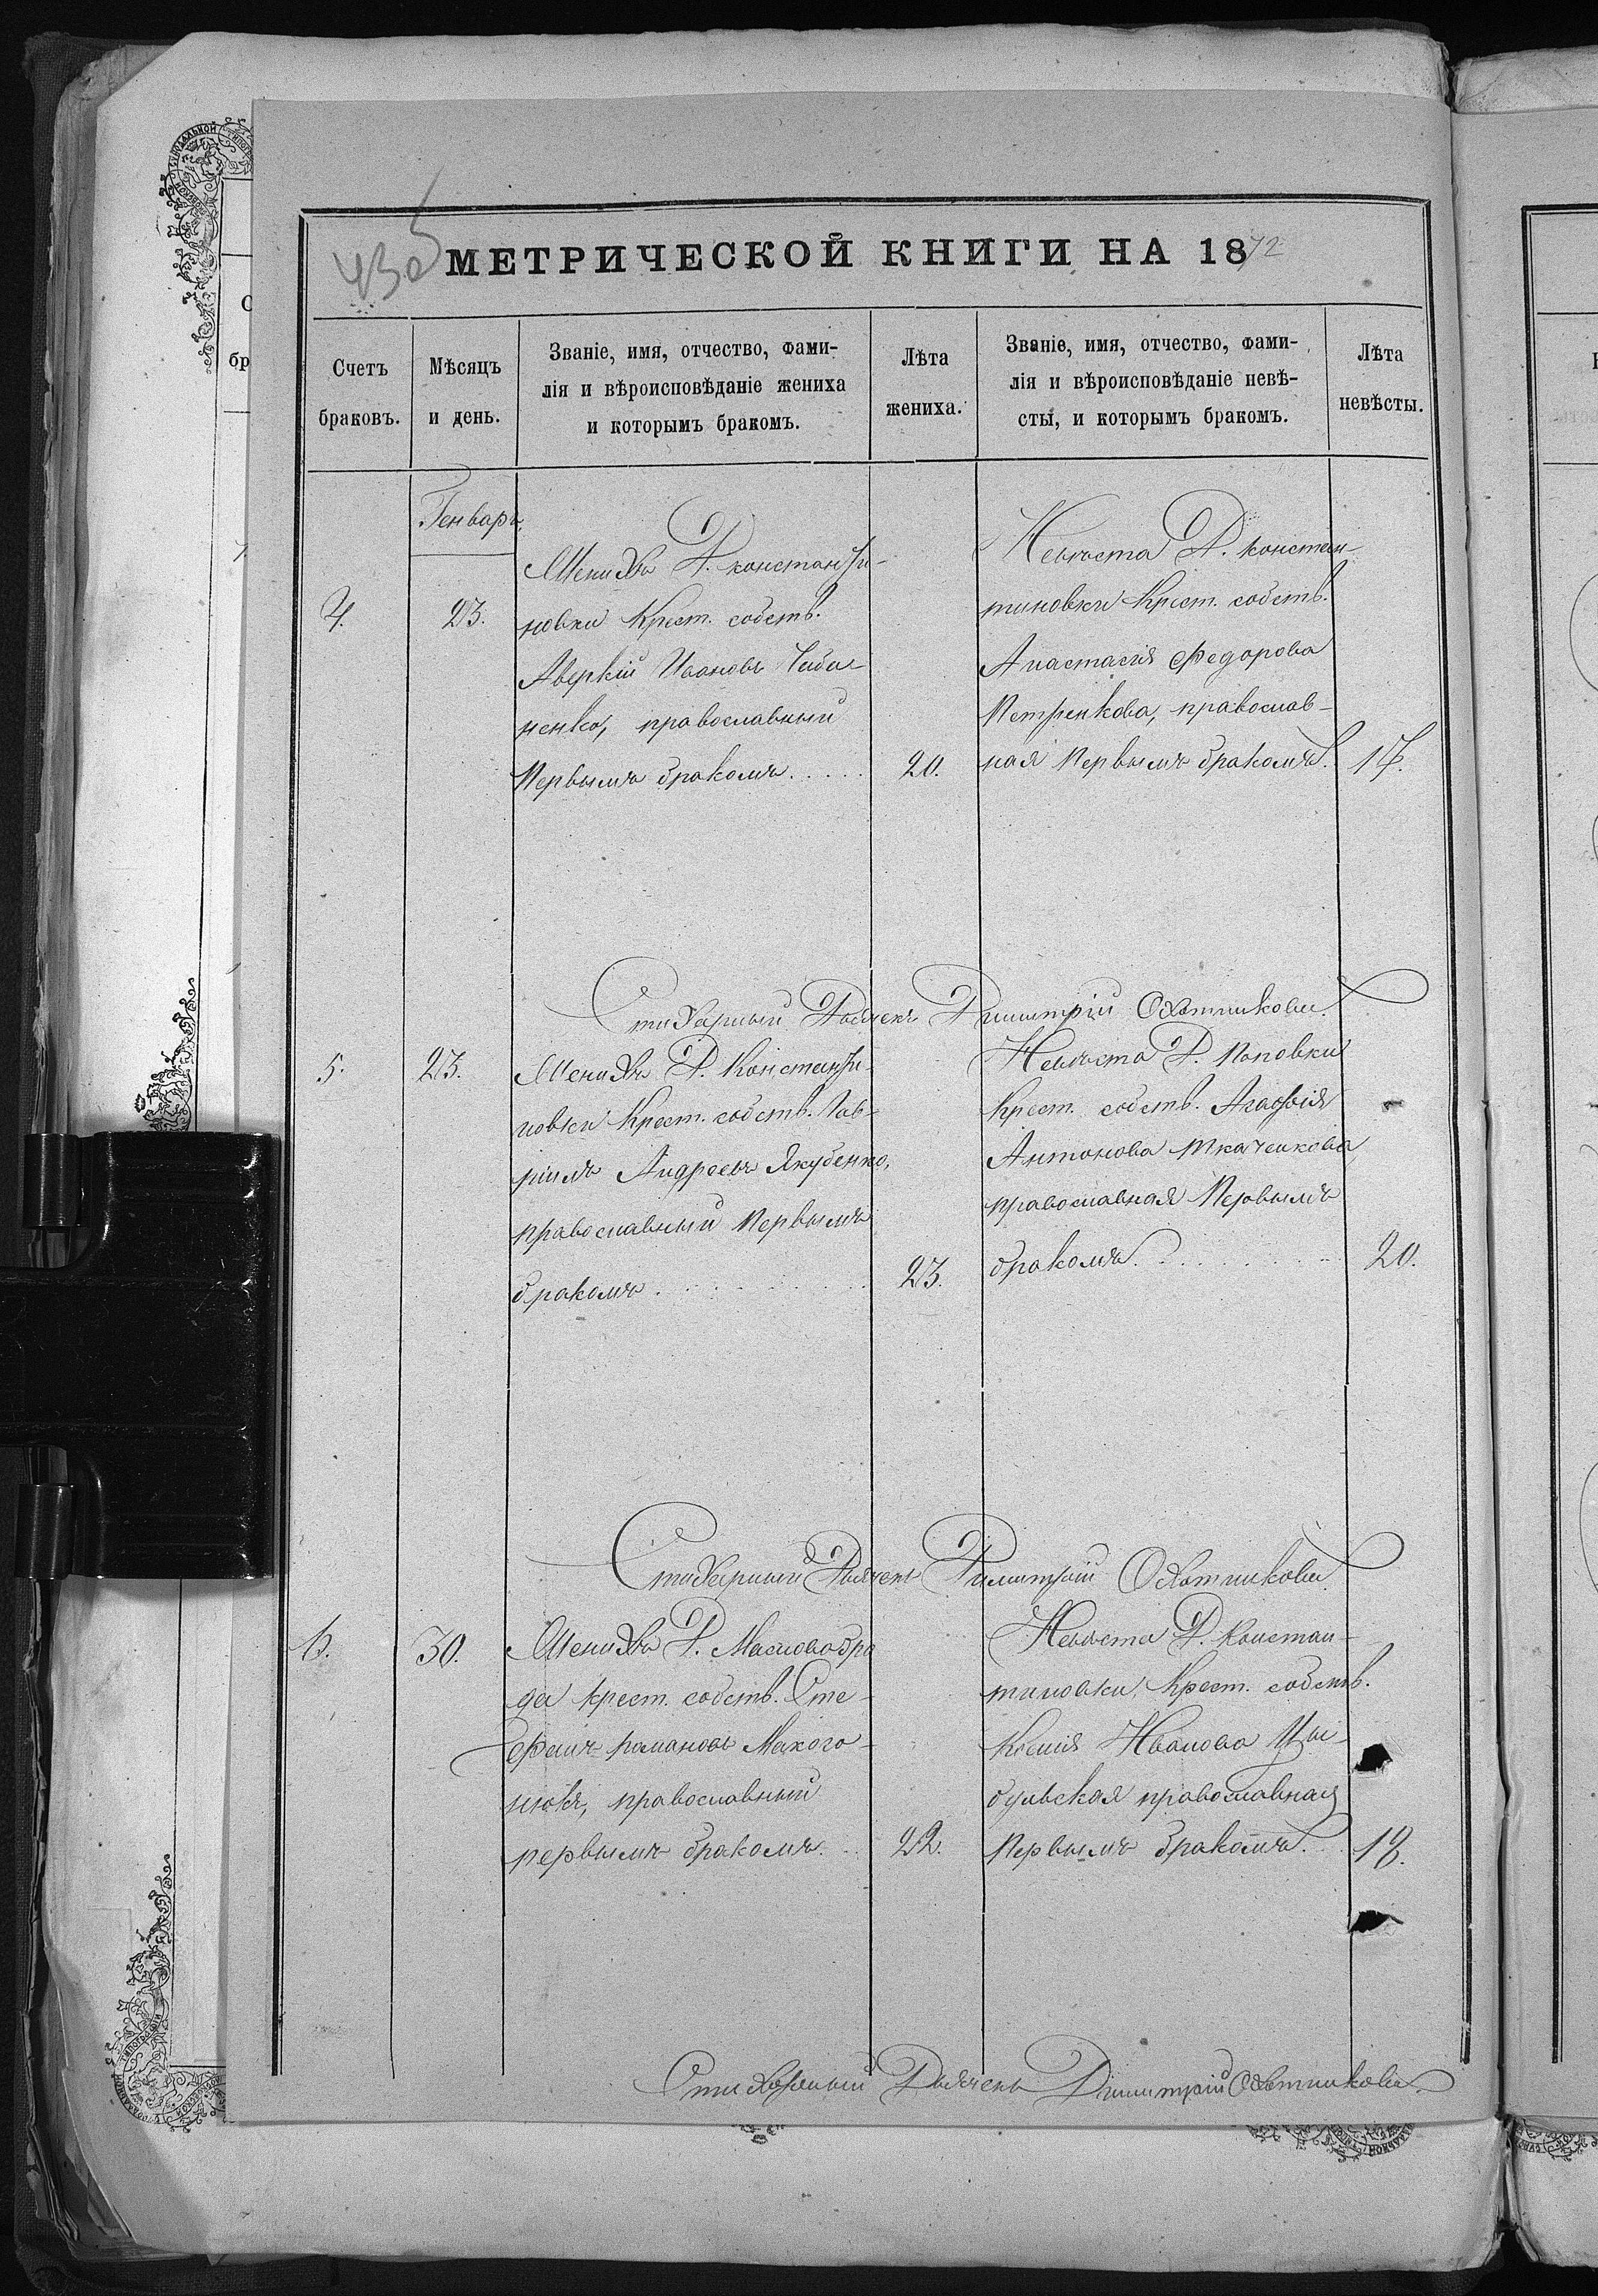 МЕТРИЧЕСКОЙ КНИГИ НА 1872
Счетъ браковъ.
Мѣсяцъ и день.
Званіе, имя, отчество, фами-
лія и вѣроисповѣданіе жениха
и которымъ бракомъ.
Лѣта жениха.
Званіе, имя, отчество, фами-
лія и вѣроисповѣданіе невѣ-
сты, и которымъ бракомъ.
Лѣта невѣсты.
Генварь
4. 23.
Женихъ Д. Константи-
новки Крест. собств.
Аверкій Ивановъ
ненко, православный
Первымъ бракомъ..... 20.
Невѣста Д. Констан-
тиновки Крест. собств.
Анастасія Федорова
Петренкова, православ-
ная Первымъ бракомъ. 17.
Стихарный Дьячекъ Димитрій Охотниковъ.
5. 23.
Женихъ Д. Константи-
новки Крест. собств. Гав-
ріилъ Андреевъ Якубенко,
православный Первымъ
бракомъ . . . . . . 23.
Невѣста Д. Поповки
Крест. собств. Агафія
Антонова Ткаченкова,
православная Первымъ
бракомъ. . . . . . . 20.
Стихарный Дьячекъ Димитрій Охотниковъ.
6. 30.
Женихъ Д. Масловобро
да крест. собств. Сте-
фанъ Романовъ Макого-
нюкъ, православный
первымъ бракомъ. . 22.
Невѣста Д. Констан-
тиновки, Крест. собств.
Ксенія Иванова Цы-
бульская православная
Первымъ бракомъ. . 18.
Стихарный Дьячекъ Димитрій Охотниковъ.